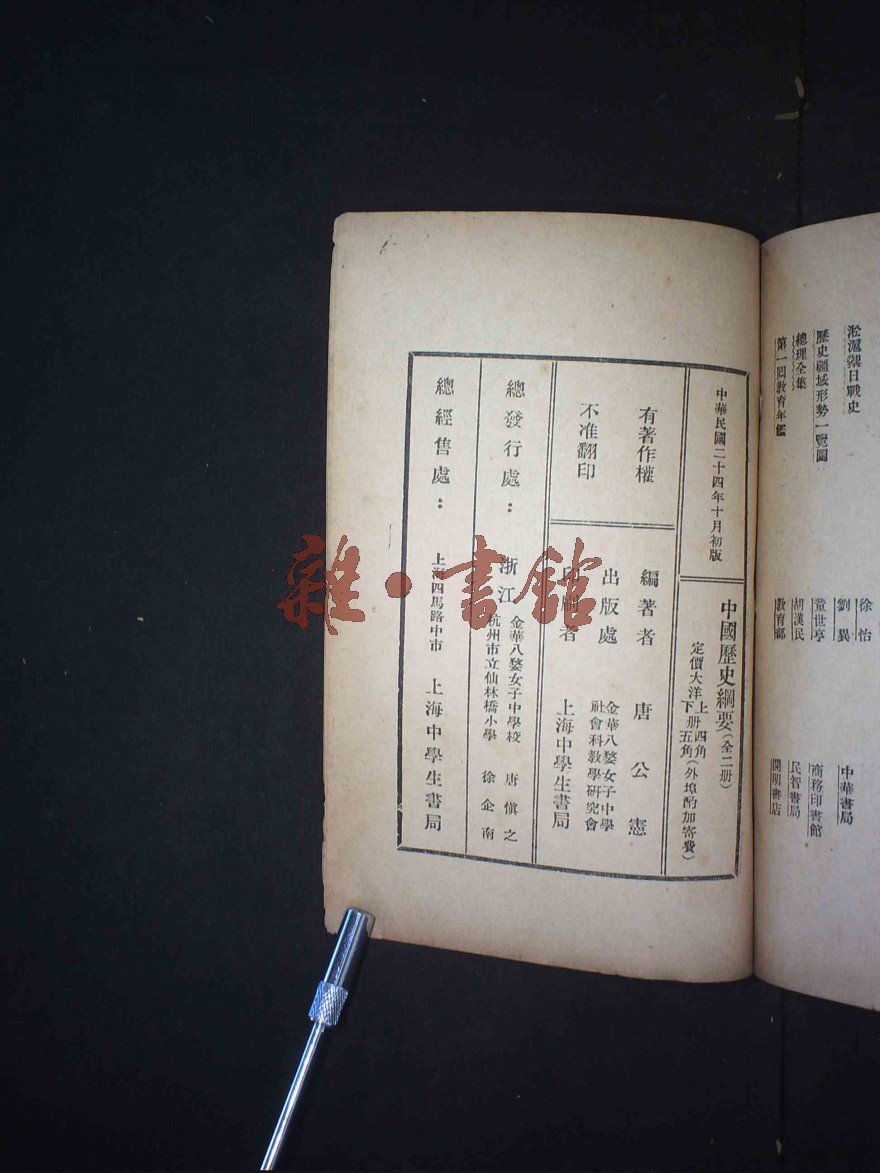 淞滬禦日戰史
歷史疆域形勢一覽圖
總理全集
第一回教育年鑑
徐怡
劉異
童世亨
胡漢民
教育部
中華書局
商務印書館
民智書局
開明書店
中華民國二十四年十月初版
中國歷史綱要(全二册)
定價大洋上册四角下册五角(外埠酌加寄費)
有著作權
不准翻印
編著者 唐公憲
出版處 金華八婺女子中學社會科教學研究會
印刷者 上海中學生書局
總發行處：浙江 金華八婺女子中學校 唐愼之
杭州市立仙林橋小學 徐企南
總經售處：上海四馬路中市 上海中學生書局
雜·書館